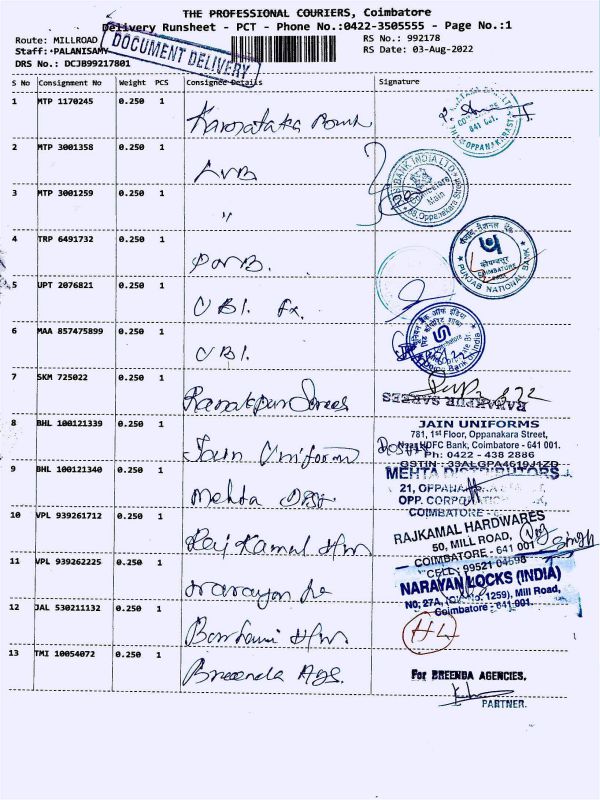 THE PROFESSIONAL COURIERS, Coimbatore
Delivery Runsheet - PCT - Phone No.:0422-3505555 - Page No.:1
Route: MILLROAD
RS No.: 992178
Staff: PALANISAMY
RS Date: 03-Aug-2022
DRS No.: DCJB99217801
DOCUMENT DELIVERY
S No Consignment No Weight PCS Consignee Details Signature
1 MTP 1170245 0.250 1 Karnataka Bank
641 001.
2 MTP 3001358 0.250 1 LVB
BANK INDIA LTD
Coimbatore
Main
Oppanakara Street
3 MTP 3001259 0.250 1 "
4 TRP 6491732 0.250 1 PNB.
पंजाब नैशनल बैंक
PUNJAB NATIONAL BANK
5 UPT 2076821 0.250 1 UBI. Ex.
6 MAA 857475899 0.250 1 UBI.
7 SKM 725022 0.250 1 Ranakpur Sarees
RANAKPUR SAREES
8 BHL 100121339 0.250 1 Jain Uniform
JAIN UNIFORMS
781, 1st Floor, Oppanakara Street,
Near HDFC Bank, Coimbatore - 641 001.
Ph: 0422 - 438 2886
GSTIN : 33ALGPA4619J1ZD
9 BHL 100121340 0.250 1 Mehta Dist
MEHTA DISTRIBUTORS
21, OPPANA
OPP. CORPORATION
COIMBATORE
10 VPL 939261712 0.250 1 Raj Kamal H/w
RAJKAMAL HARDWARES
50, MILL ROAD,
COIMBATORE - 641 001
CELL: 99521 04698
Singh
11 VPL 939262225 0.250 1 Narayan
NARAYAN LOCKS (INDIA)
No. 27A, (Old No. 1259), Mill Road,
Coimbatore - 641 001.
12 JAL 530211132 0.250 1 H/w
13 TMI 10054072 0.250 1 Breenda Ags.
For BREENDA AGENCIES.
PARTNER.